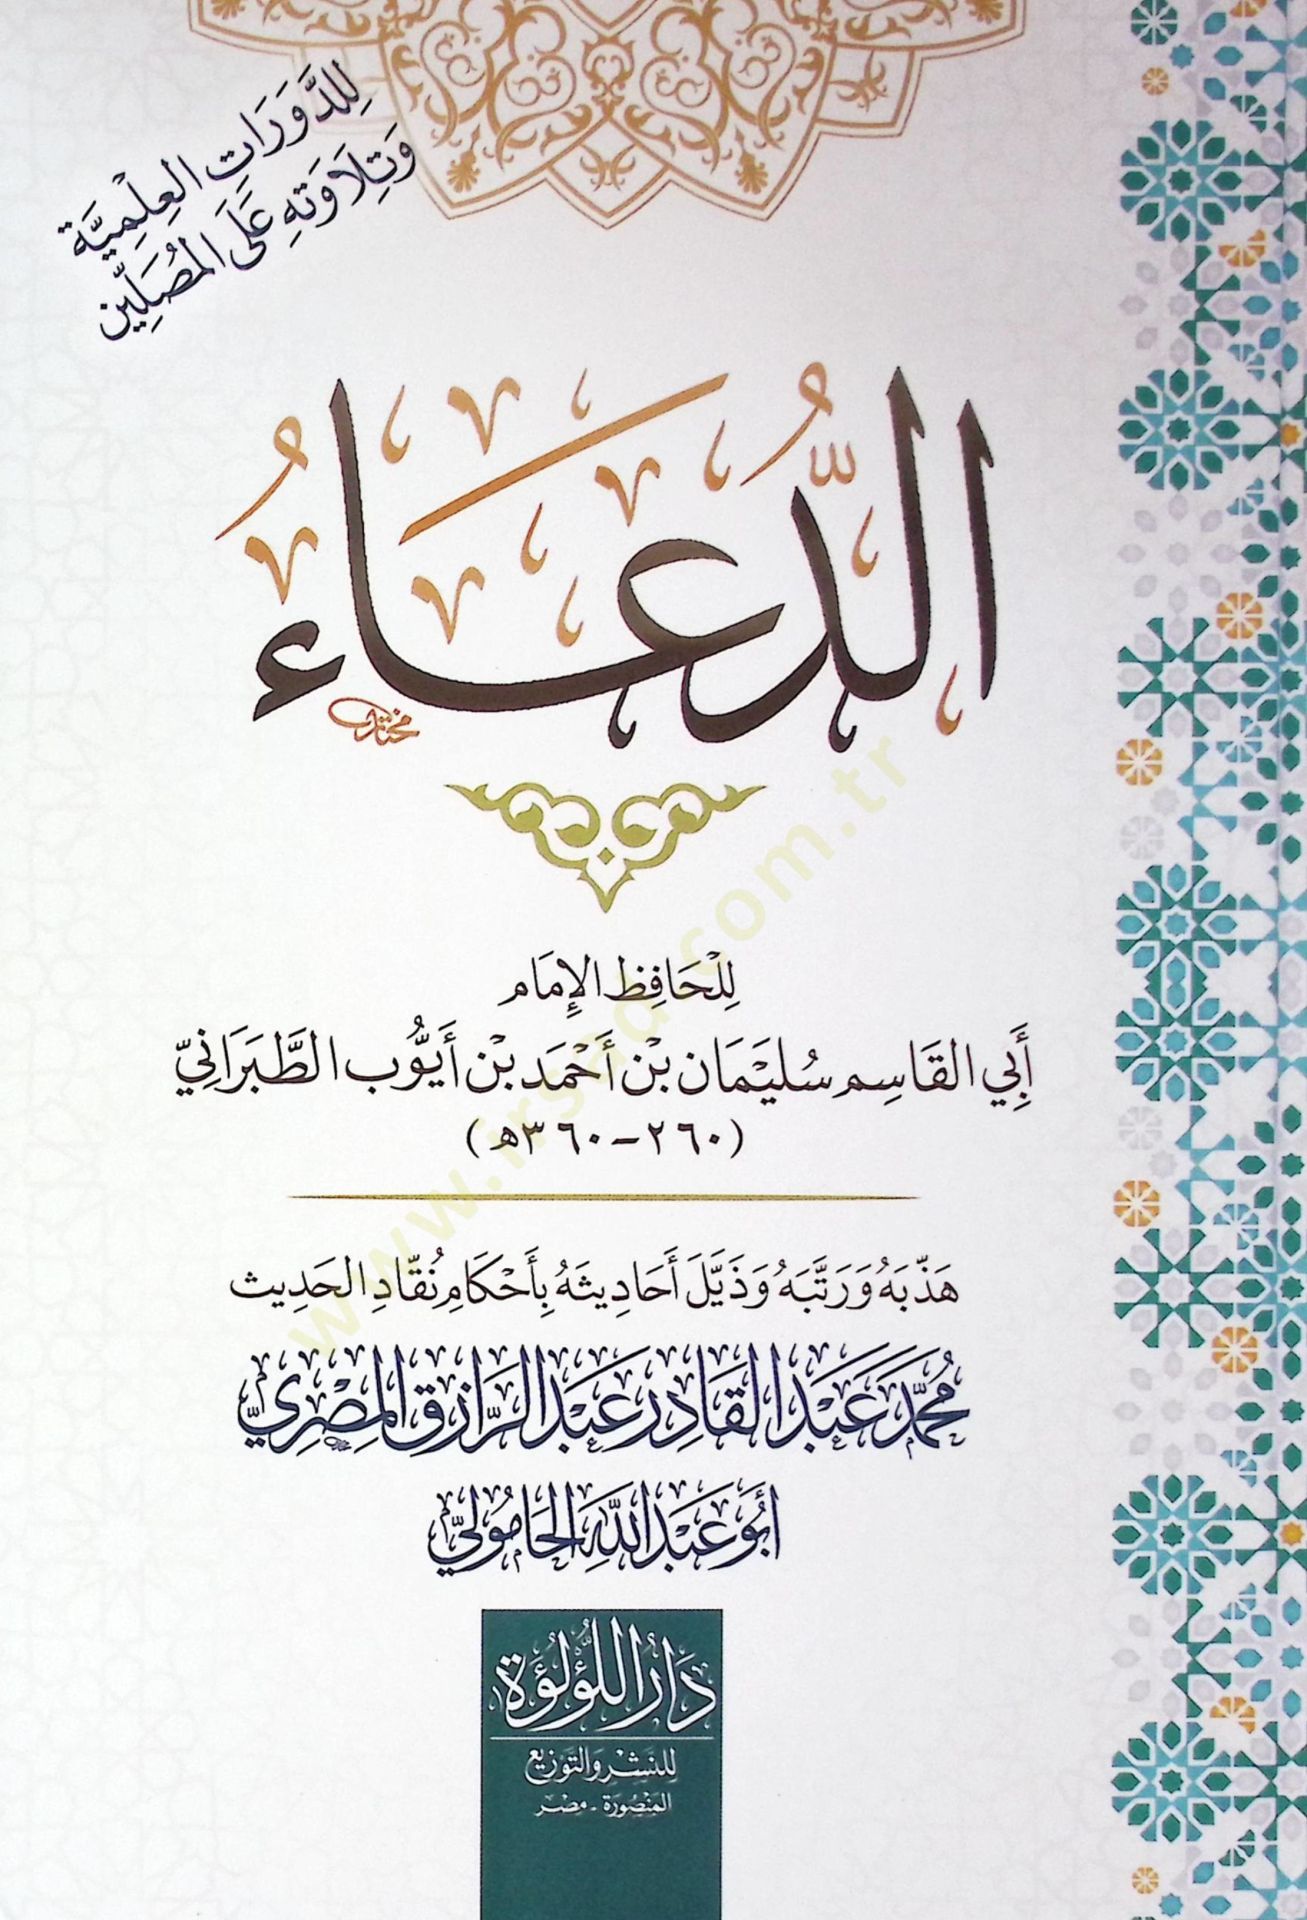 لِلدَّوَرَاتِ العِلْمِيَّة
وَتِلَاوَتِهِ عَلَى المُصَلِّين
الدُّعَاءُ
مختار
لِلْحَافِظِ الإِمَام
أَبِي القَاسِم سُلَيْمَان بْن أَحْمَد بْن أَيُّوب الطَّبَرَانِيّ
(٢٦٠-٣٦٠ه)
هَذَّبَهُ وَرَتَّبَهُ وَذَيَّلَ أَحَادِيثَهُ بِأَحْكَامِ نُقَّادِ الحَدِيث
مُحَمَّد عَبْد القَادِر عَبْد الرَّازِق المِصْرِيّ
أَبُو عَبْد اللَّهِ الحَامُولِيّ
دَارُ اللُّؤْلُؤَة
لِلنَّشْرِ وَالتَّوْزِيع
المَنْصُورَة - مِصْر
www.irsad.com.tr